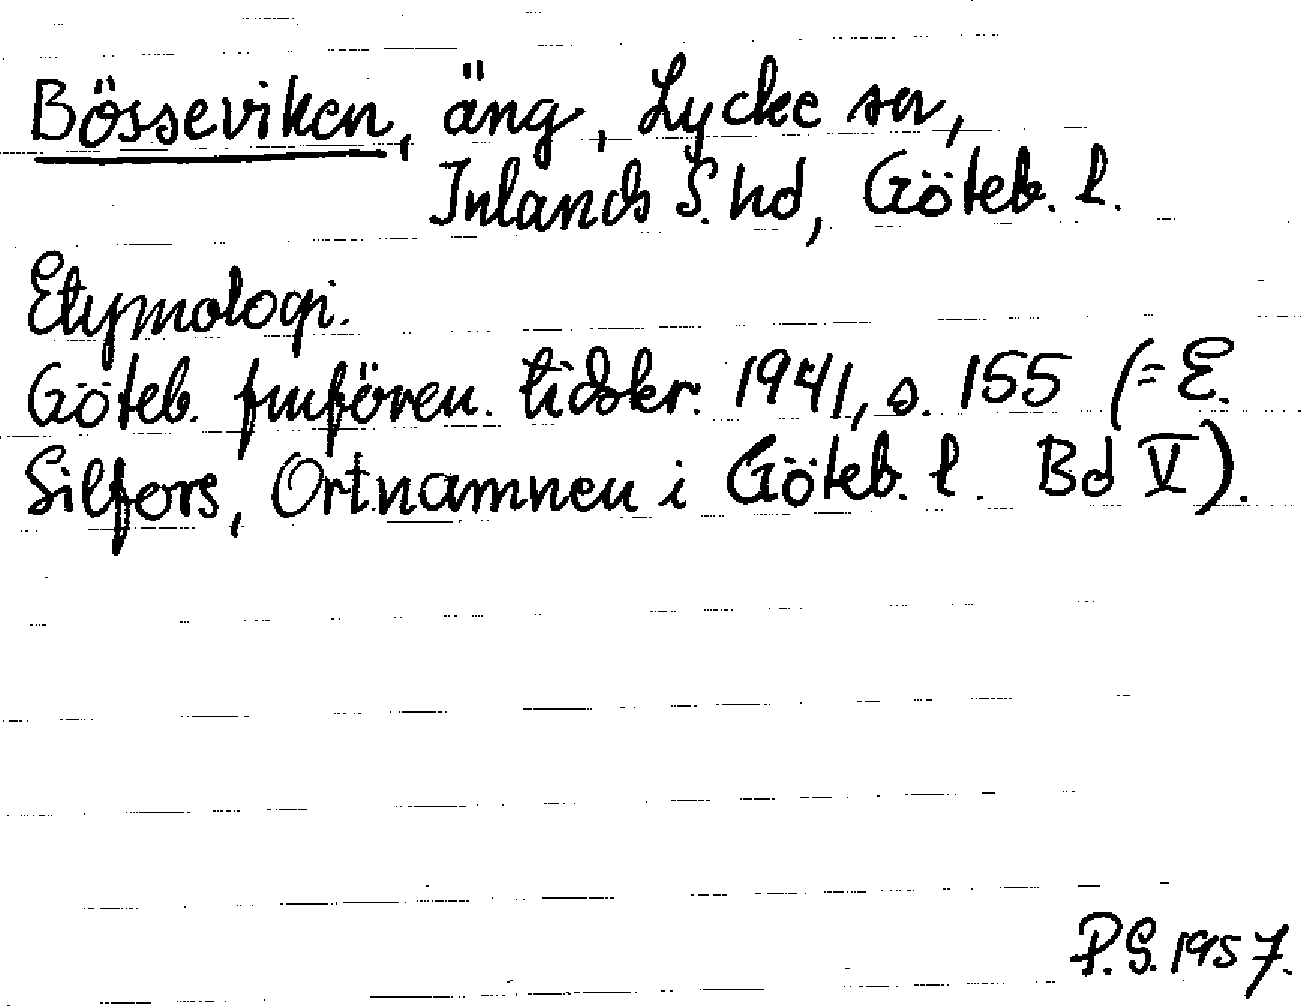 Bösseviken, äng, Lycke sn,
Inlands S. hd, Göteb. l.
Etymologi.
Göteb. fmfören. tidskr. 1941, s. 155 (= E.
Silfors, Ortnamnen i Göteb. l. Bd V).
P.S. 1957.